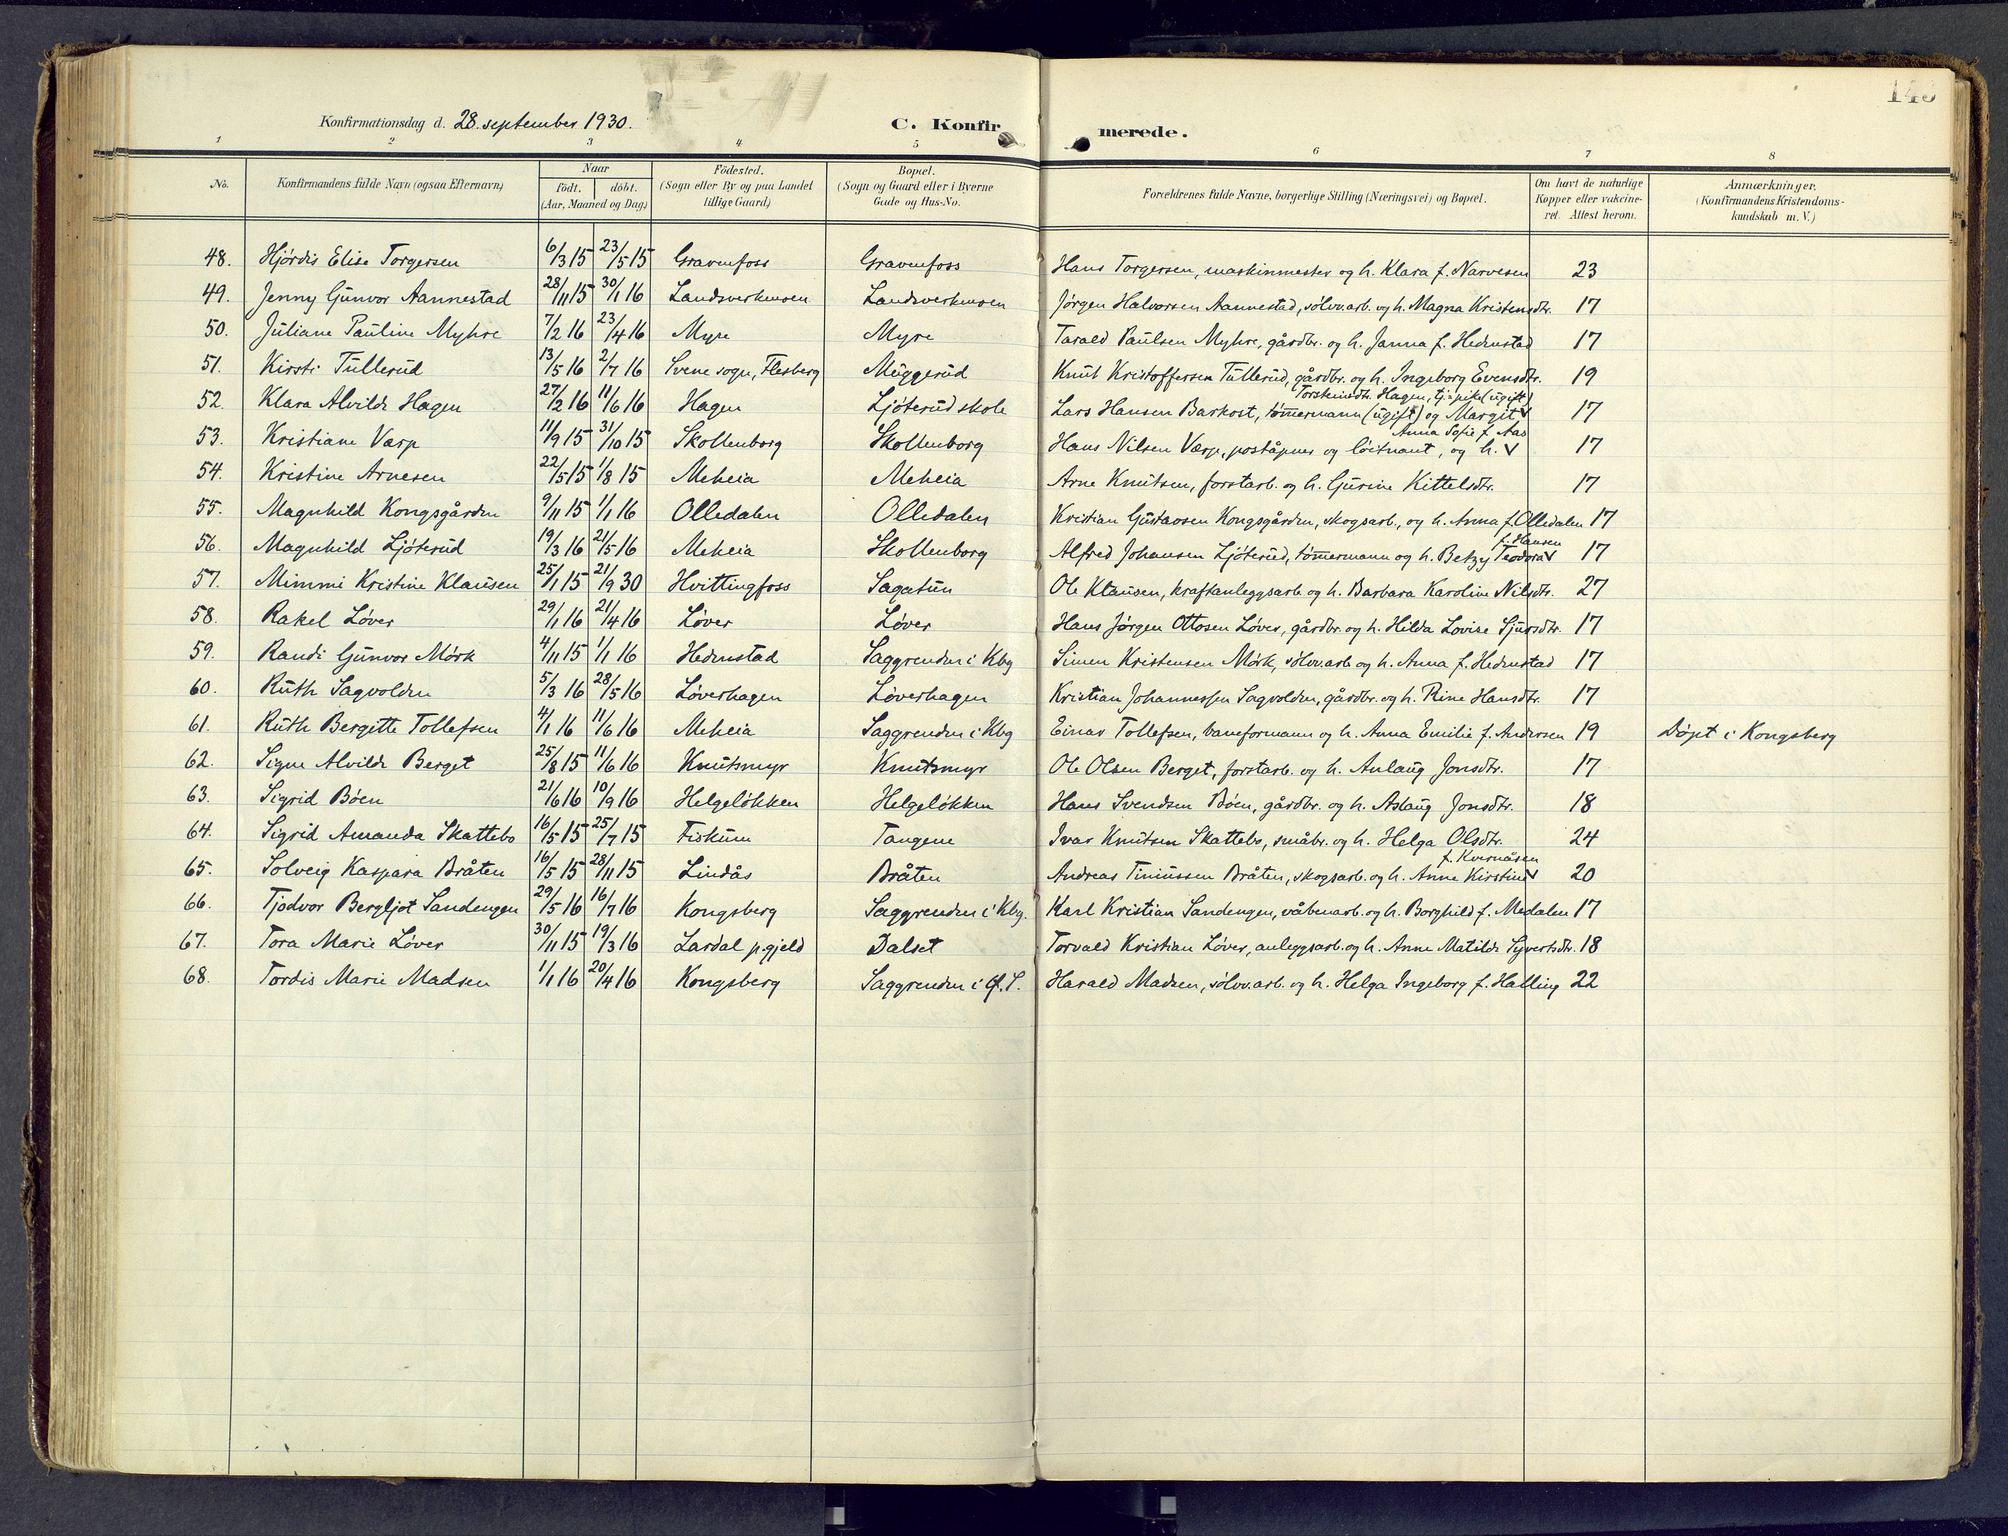 Konfirmationsdag d. 28. september 1930.
C. Konfirmerede.
1 2 3 4 5 6 7 8
No.
Konfirmandens fulde Navn (ogsaa Efternavn)
Naar
født. døbt.
(Aar, Maaned og Dag)
Fødested.
(Sogn eller By og paa Landet
tillige Gaard)
Bopæl.
(Sogn og Gaard eller i Byerne
Gade og Hus-No.
Forældrenes fulde Navne, borgerlige Stilling (Næringsvei) og Bopæl.
Om havt de naturlige
Kopper eller vakcine-
ret. Attest herom.
Anmærkninger.
(Konfirmandens Kristendoms-
kundskab m. V.)
48. Hjørdis Elise Torgersen 6/3 15 23/5 15 Gravenfoss Gravenfoss Hans Torgersen, maskinmester og h. Klara f. Narvesen 23
49. Jenny Gunvor Aannestad 28/11 15 30/1 16 Landsverkmoen Landsverkmoen Jørgen Halvorsen Aannestad, sølvv.arb. og h. Magna Kristensdtr. 17
50. Juliane Pauline Myhre 7/2 16 23/4 16 Myre Myre Tarald Paulsen Myhre, gårdbr. og h. Janna f. Hedenstad 17
51. Kirsti Tullerud 13/5 16 2/7 16 Svene sogn, Flesberg Muggerud Knut Kristoffersen Tullerud, gårdbr. og h. Ingeborg Evensdtr. 19
Torsteinsdtr. Hagen, tj.pike (ugift)
52. Klara Alvilde Hagen 27/2 16 11/6 16 Hagen Ljøterud skole Lars Hansen Barkost, tømmermann (ugift) og Margit v 17
Anna Sofie f. Aas
53. Kristiane Værp 11/9 15 31/10 15 Skollenborg Skollenborg Hans Nilsen Værp, poståpner og løitnant, og h. v 17
54. Kristine Arnesen 22/5 15 1/8 15 Meheia Meheia Arne Knutsen, forstarb. og h. Gurine Kittelsdtr. 17
55. Magnhild Kongsgården 9/11 15 1/1 16 Olledalen Olledalen Kristian Gustavsen Kongsgården, skogsarb., og h. Anna f. Olledalen 17
f. Hansen
56. Magnhild Ljøterud 19/3 16 21/5 16 Meheia Skollenborg Alfred Johansen Ljøterud, tømmermann og h. Betzy Teodora v 17
57. Mimmi Kristine Klausen 25/1 15 21/9 30 Hvittingfoss Sagatun Ole Klausen, kraftanleggsarb. og h. Barbara Karoline Nilsdtr. 27
58. Rakel Løver 29/1 16 21/4 16 Løver Løver Hans Jørgen Ottosen Løver, gårdbr. og h. Hilda Lovise Sjursdtr. 17
59. Randi Gunvor Mørk 4/11 15 1/1 16 Hedenstad Saggrenden i Kbg Simen Kristensen Mørk, sølvv.arb. og h. Anna f. Hedenstad 17
60. Ruth Sagvolden 5/3 16 28/5 16 Løverhagen Løverhagen Kristian Johannessen Sagvolden, gårdbr. og h. Rine Hansdtr. 17
61. Ruth Bergitte Tollefsen 4/1 16 11/6 16 Meheia Saggrenden i Kbg Einar Tollefsen, baneformann og h. Anna Emilie f. Andersen 19 Døpt i Kongsberg
62. Signe Alvilde Berget 25/8 15 11/6 16 Knutsmyr Knutsmyr Ole Olsen Berget, forstarb. og h. Anlaug Jonsdtr. 17
63. Sigrid Bøen 21/6 16 10/9 16 Helgeløkken Helgeløkken Hans Svendsen Bøen, gårdbr. og h. Aslaug Jonsdtr. 18
64. Sigrid Amanda Skattebo 16/5 15 25/7 15 Fiskum Tangene Ivar Knutsen Skattebo, småbr. og h. Helga Olsdtr. 24
f. Kvernåsen
65. Solveig Kaspara Bråten 16/5 15 28/11 15 Lindås Bråten Andreas Tinussen Bråten, skogsarb. og h. Anne Kirstine v 20
66. Tjodvor Bergljot Sandengen 29/5 16 16/7 16 Kongsberg Saggrenden i Kbg. Karl Kristian Sandengen, våbenarb. og h. Borghild f. Medalen 17
67. Tora Marie Løver 30/11 15 19/3 16 Lardal p.gjeld Dalset Torvald Kristian Løver, anleggsarb. og h. Anne Matilde Syvertsdtr. 18
68. Tordis Marie Madsen 1/1 16 20/4 16 Kongsberg Saggrenden i Ø.S. Harald Madsen, sølvv.arb. og h. Helga Ingeborg f. Halling 22